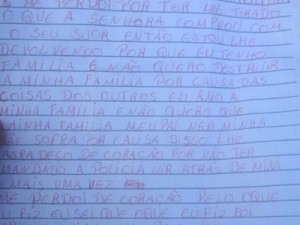 ME PERDOI POR TER LHE TIRADO
O QUE A SENHORA COMPROU COM
O SEU SUOR ENTÃO ESTOU LHE
DEVOLVENDO POR QUE EU TENHO
FAMILIA E NÃO QUERO DESTRUIR
A MINHA FAMILIA POR CAUSA DAS
COISAS DOS OUTROS EU AMO A
MINHA FAMILIA E NÃO QUERO QUE
MINHA FAMILIA MEU PAI NEM MINHA
MÃE SOFRA POR CAUSA DISSO LHE
AGRADEÇO DE CORAÇÃO POR NÃO TER
MANDADO A POLICIA VIR ATRAS DE MIM
MAIS UMA VEZ
ME PERDOI DE CORAÇÃO PELO OQUE
EU FIZ EU SEI QUE OQUE EU FIZ FOI